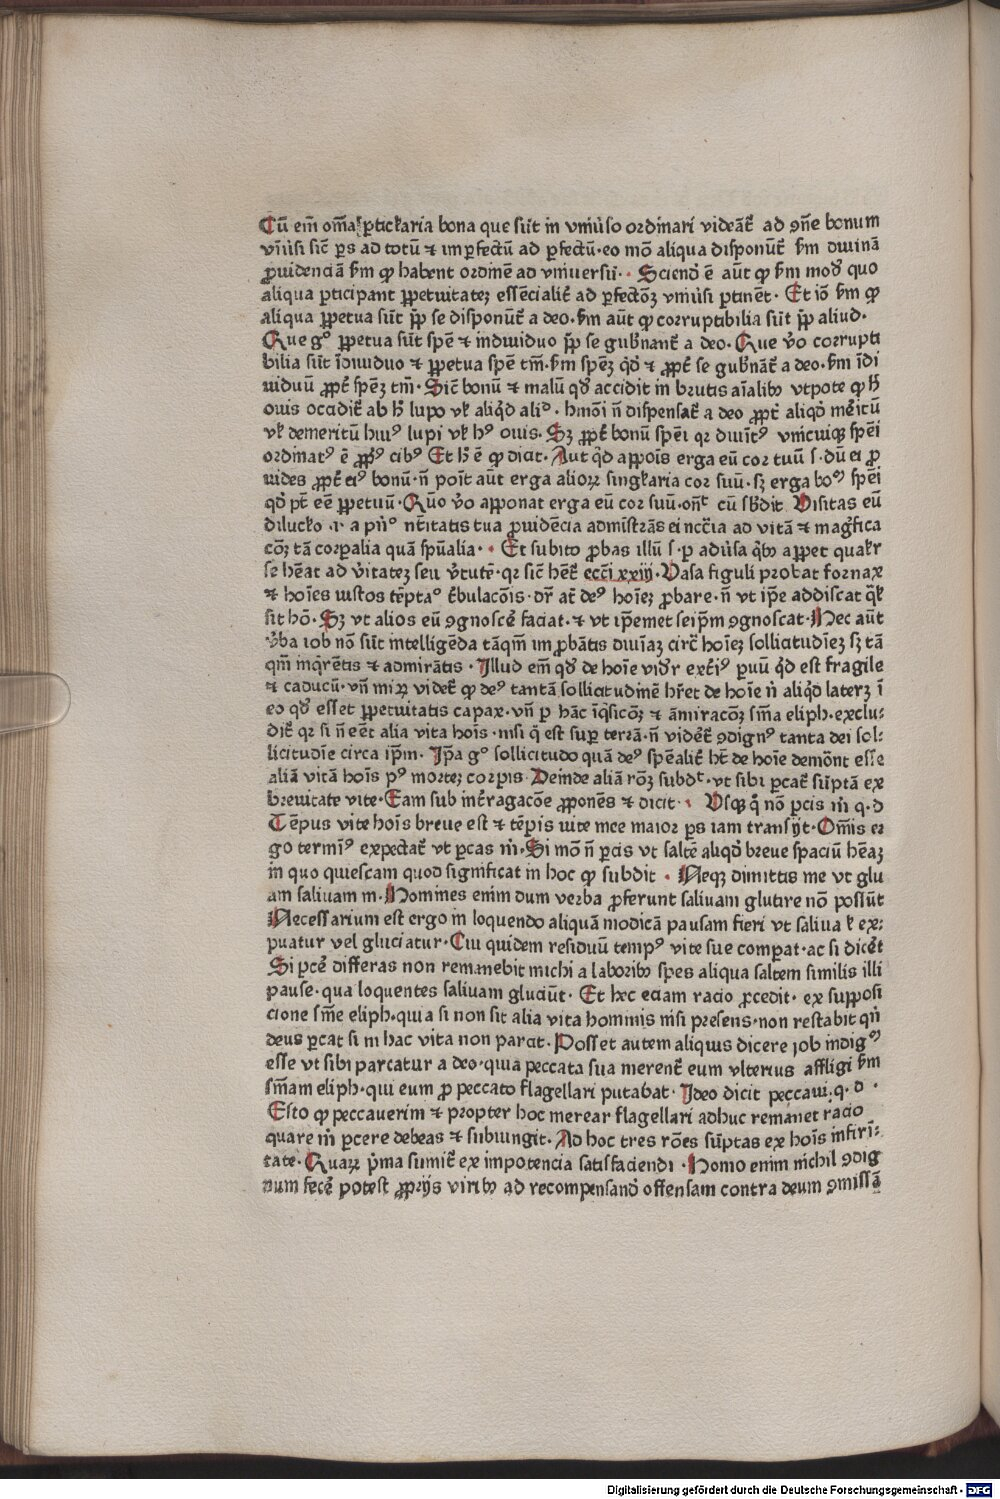 Cū em̄ om̄a ꝑtickaria bona que sūt in vniu̇so ordinari videāt̉ ad ꝯn̄e bonum
vniu̇si sic̄ ꝑs ad totū ⁊ imꝑfectū ad ꝑfectū·eo mō aliqua disponūt̉ ẜm diuinā
ꝓuidenciā ẜm ꝙ habent ordinē ad vniuersū· Sciend̉ ē aūt ꝙ ẜm mod̉ quo
aliqua ꝑticipant ꝑꝑetuitateꝫ essēcialit̉ ad ꝑfectōꝫ vniu̇si ꝑtinēt· Et iō ẜm ꝙ
aliqua ꝑꝑetua sūt ꝓp̄ se disponūt̉ a deo·ẜm aūt ꝙ corruptibilia sūt ꝓp̄ aliud·
Que gº ꝑꝑetua sūt spē ⁊ indiuiduo ꝓp̄ se gub̉nant̉ a deo·Que v̉o corrupti
bilia sūt īdiuiduo ⁊ ꝑꝑetua spē tm̄·ẜm speꝫ qd̉ ⁊ ꝓpt̉ se gub̉nāt̉ a deo·ẜm īdi
uiduū ꝓpt̉ speꝫ tm̄·Sic̄ bonū ⁊ malū qd̉ accidit in brutis aīalibꝫ vtpote ꝙ h̄
ouis occidit̉ ab h̄ lupo vk aliqd̉ aliᵈ· hmōi n̄ dispensat̉ a deo ꝓpt̉ aliqd̉ mei̇tū
vk demeritū huiꝰ lupi vk hꝰ ouis·Sꝫ ꝓpt̉ bonū spēi qr diuītꝰ vnicuiqꝫ spēi
ordinatꝰ ē ꝓpꝰ cibꝰ Et h̄ ē ꝙ dicit·Aut qd̉ appoīs erga eū cor tuū s·dū ei ꝓ
uides ꝓpt̉ eiꝰ bonū·n̄ poīt aūt erga alioꝝ singkaria cor suū·sꝫ erga boꝰ spēi
qd̉ pt̄ eē ꝑꝑetuū·Quō v̉o apponat erga eū cor suū·on̄t̉ cū sb̉dit Uisitas eū
dilucko ·i· a pn̉º nt̄itatis tua ꝓuidēcia adminīstrās ei nccr̄ia ad vitā ⁊ mag̉fica
cōꝫ tā corꝑalia quā spūalia· Et subito ꝓbas illū s·ꝑ adu̇sa qi̇bꝫ appet quakr
se hēat ad v̉itateꝫ seu v̉tutē·qr sic̄ het̉ ecc̄i xxiij·Uasa figuli probat fornax
⁊ hoīes iustos tēptaº t̉bulacōis·dr̄ at̄ deꝰ hoīeꝫ ꝓbare·n̄ vt ip̄e addiscat q̇k
sit hō·Sꝫ vt alios eū ꝯgnosce̓ faciat·⁊ vt ip̄emet seip̄m ꝯgnoscat·Nec aūt
v̉ba iob nō sūt intelligēda tāqm̄ imꝓbātis diuīaꝫ circ̄ hoīeꝫ sollicitudīeꝫ sꝫ tā
qm̄ inq̉rētis ⁊ admirātis · Illud em̄ qd̉ de hoīe vid̉r ext̉iꝰ ꝑuū qd̉ est fragile
⁊ caducū·vn̄ miꝝ videt̉ ꝙ deꝰ tantā sollicitudinē hr̄et de hoīe n̄ aliqd̉ laterꝫ ī
eo qd̉ esset ꝑꝑetuitatis capax·vn̄ ꝑ hāc īq̇sicōꝫ ⁊ āmiracōꝫ sm̄a eliph·exclu⸗
dit̉ qr si n̄ eēt alia vita hoīs·nisi q̇ est suꝑ terrā·n̄ videt̉ ꝯdignꝰ tanta dei sol⸗
licitudīe circa ip̄m· Ip̄a gº sollicitudo quā deꝰ spēalit̉ ht̄ de hoīe demōnt̄ esse
aliā vitā hoīs pꝰ morteꝫ corꝑis·Deinde aliā rōꝫ subdᵗ·vt sibi ꝑcat̉ sūptā ex
breuitate vite·Eam sub int̉ragacōe ꝓponēs ⁊ dicit· Usqꝫ q̊ nō ꝑcis m̉ q·d
Tēpus vite hoīs breue est ⁊ tēꝑis uite mee maior ꝑs iam transijt·Om̄is er
go termīꝰ expectat̉ vt ꝑcas m̉·Si mō n̄ ꝑcis vt saltē aliqd̉ breue spaciū hēaꝫ
in quo quiescam quod significat in hoc ꝙ subdit · Neqꝫ dimittis me vt glu
am saliuam m·Homines enim dum verba ꝓferunt saliuam glutire nō possūt
Necessarium est ergo in loquendo aliquā modicā pausam fieri vt saliua k ex⸗
puatur vel gluciatur·Cui quidem residuū tempꝰ vite sue comꝑat·ac si dice̓t
Si ꝑce̓ differas non remanebit michi a laboribꝫ spes aliqua saltem similis illi
pause·qua loquentes saliuam gluciūt· Et hec eciam racio ꝓcedit· ex supposi
cione sm̄e eliph·quia si non sit alia vita hominis nisi presens·non restabit qn̄
deus ꝑcat si in hac vita non parcit·Posset autem aliquis dicere iob indigꝰ
esse vt sibi parcatur a deo·quia peccata sua merent̉ eum vlterius affligi ẜm
sm̄am eliph·qui eum ꝓ peccato flagellari putabat· Ideo dicit peccaui·q·d·
Esto ꝙ peccauerim ⁊ propter hoc merear flagellari adhuc remanet racio
quare m̉ ꝑcere debeas ⁊ subiungit·Ad hoc tres rōes sūptas ex hoīs infirī⸗
tate·Quaꝝ pi̇ma sumit̉ ex impotencia satisfaciendi ·Homo enim nichil ꝯdig
num fece̓ potest ꝓprijs viribꝫ ad recompensand̉ offensam contra deum ꝯmissā
Digitalisierung gefördert durch die Deutsche Forschungsgemeinschaft - DFG